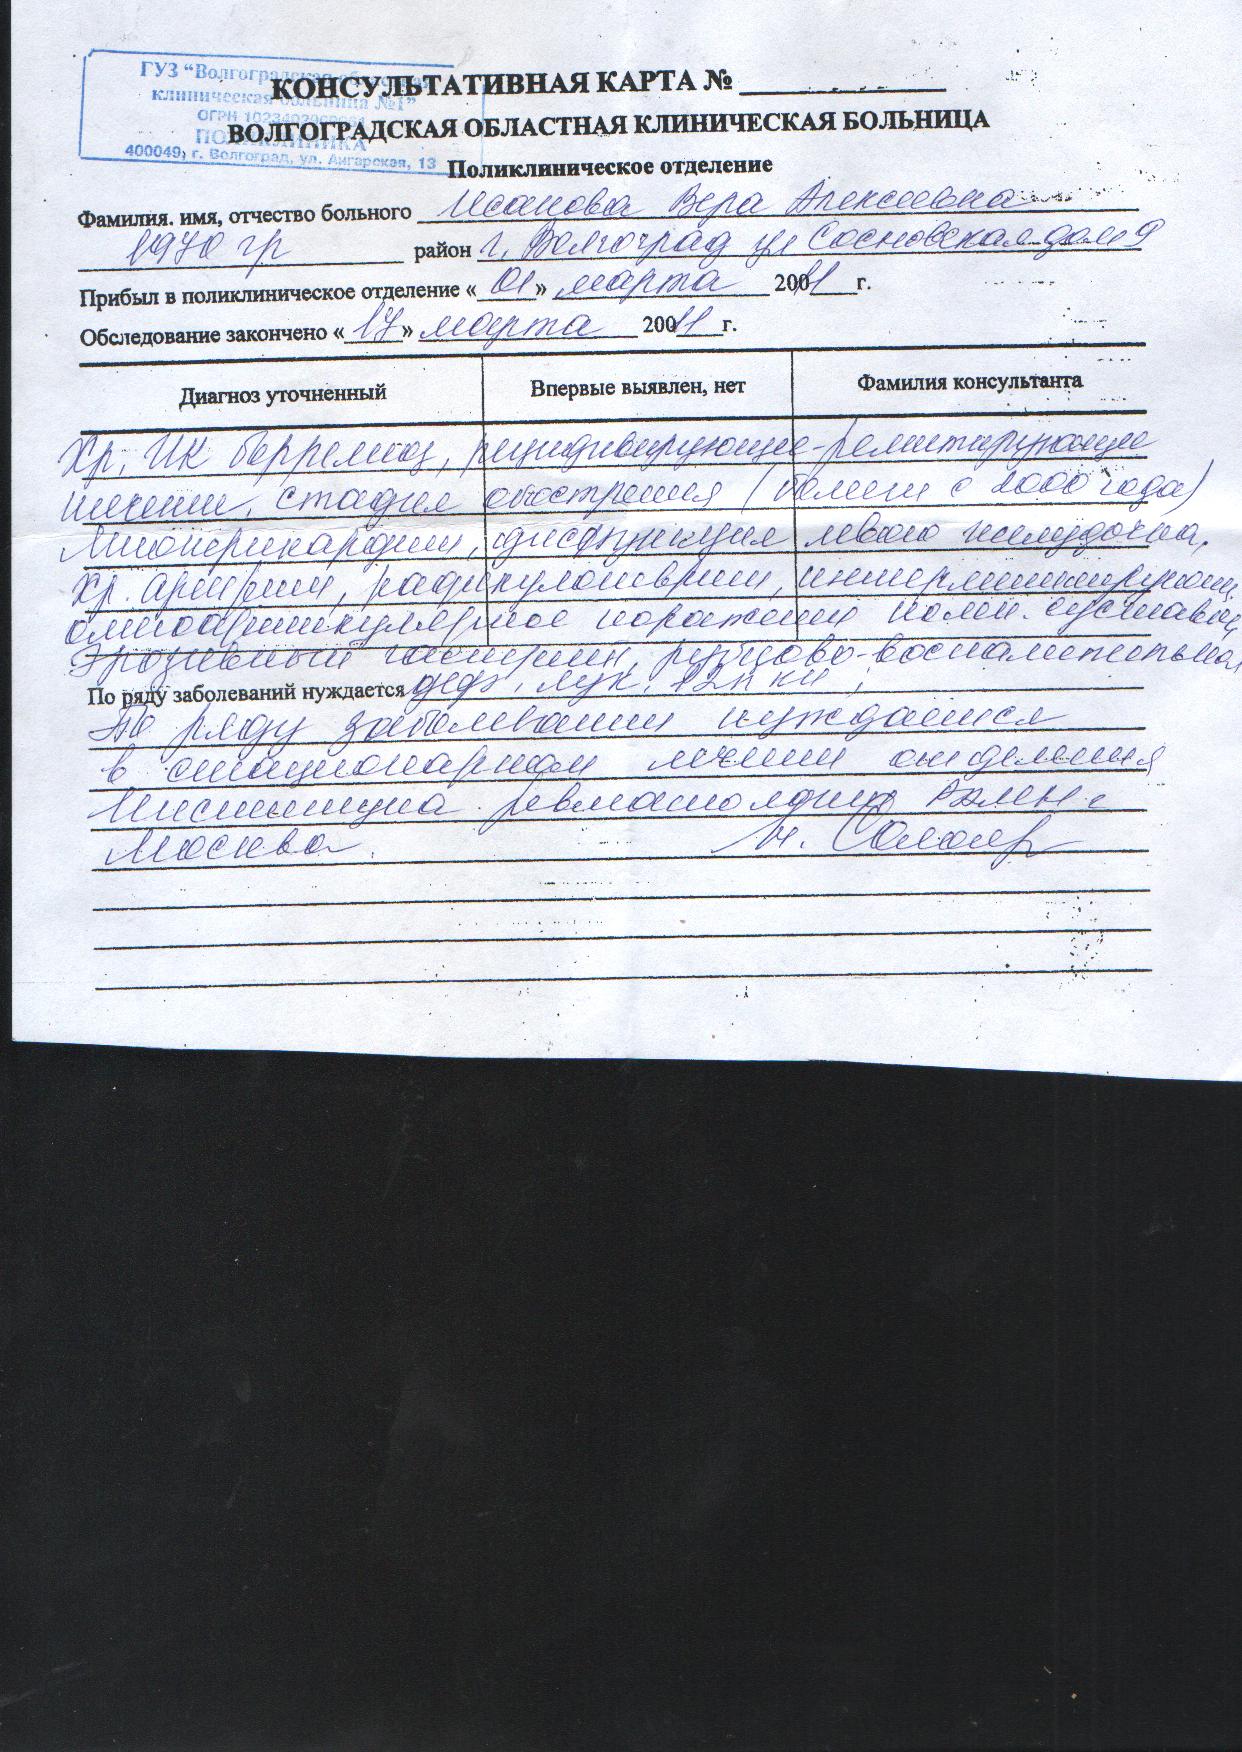 ГУЗ "Волгоградская областная
клиническая больница №1"
ОГРН
ПОЛИКЛИНИКА
400049, г. Волгоград, ул. Ангарская, 13
КОНСУЛЬТАТИВНАЯ КАРТА №
ВОЛГОГРАДСКАЯ ОБЛАСТНАЯ КЛИНИЧЕСКАЯ БОЛЬНИЦА
Поликлиническое отделение
Фамилия. имя, отчество больного Исанова Вера Алексеевна
1970 гр район г. Волгоград ул Сосновская дом 9
Прибыл в поликлиническое отделение «01» марта 20011 г.
Обследование закончено «17» марта 20011 г.
Диагноз уточненный Впервые выявлен, нет Фамилия консультанта
Хр. ИК боррелиоз, рецидивирующее-ремитирующее
течение, стадия обострения (болеет с 2000 года)
Миоперикардит, дисфункция левого желудочка,
Хр. артрит, радикулоневрит,
олигоартикулярное поражение колен. суставов,
Эрозивный гастрит, рубцово-воспалительная
По ряду заболеваний нуждается деф. лук. 12п к-ки
По ряду заболеваний нуждается
в стационарном лечении отделения
Института ревматологии РАМН г
Москва.